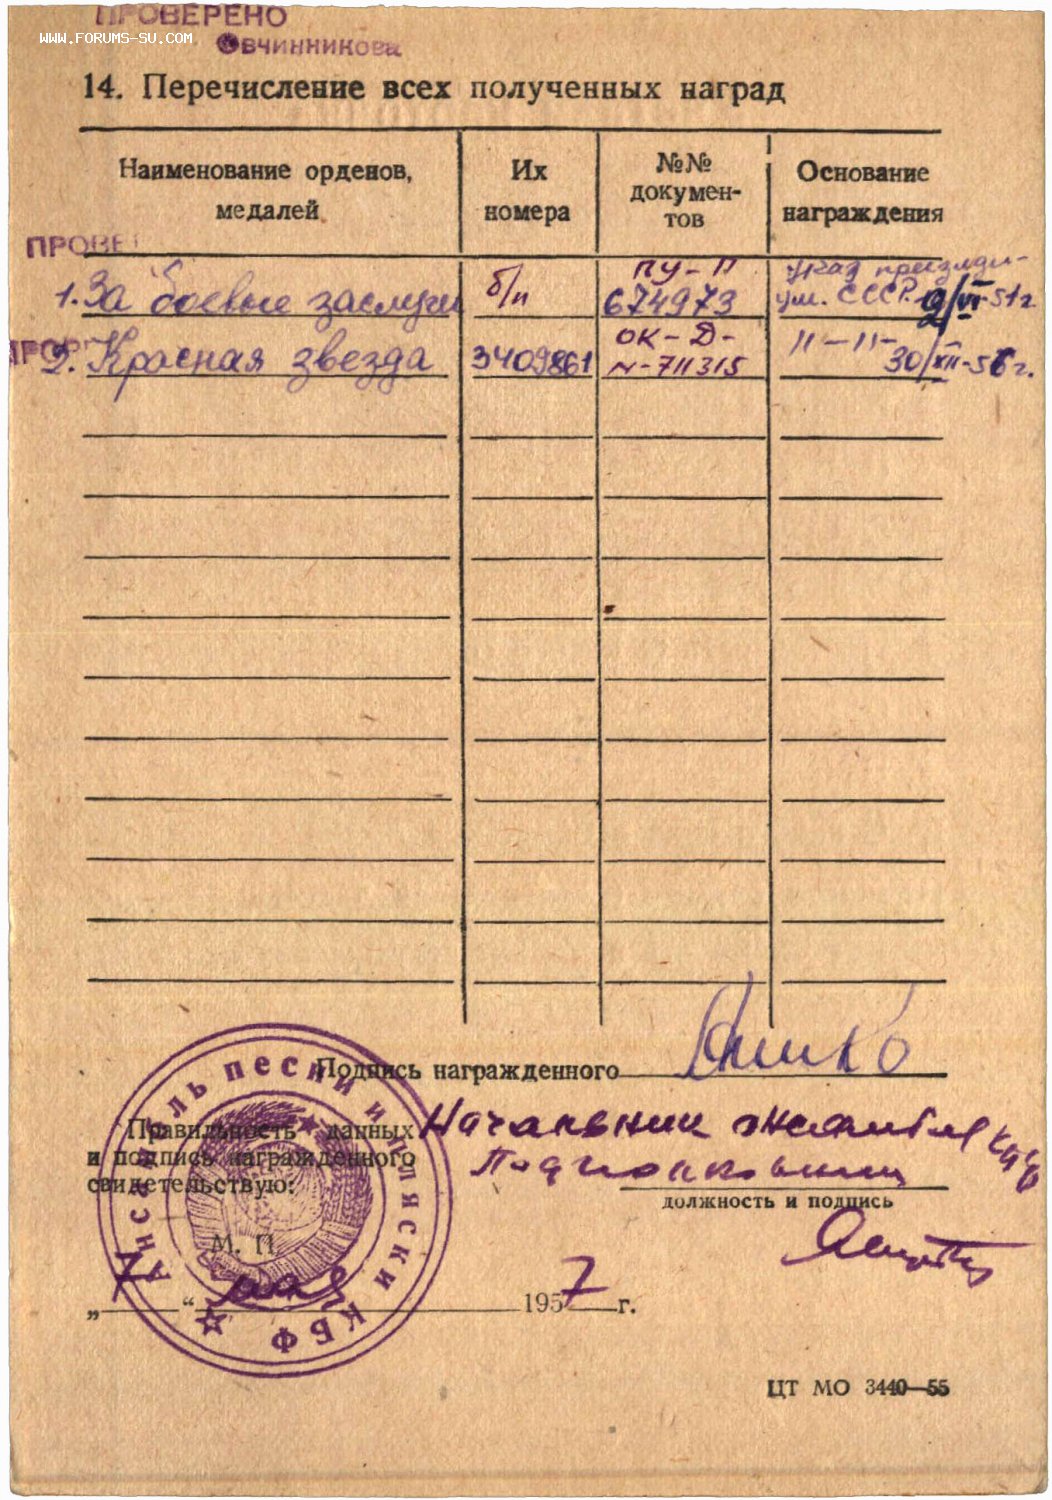 ПРОВЕРЕНО
WWW.FORUMS-SU.COM
Овчинникова
14. Перечисление всех полученных наград
Наименование орденов, медалей
Их номера
№№ докумен-
тов
Основание награждения
ПРОВЕ
1. За боевые заслуги б/н ПУ-П 674973 Указ президи-
ум. СССР 9/VI-51г
2. Красная звезда 3409861 ОК-Д-
N-711315 11-11-
30/XII-56г.
Подпись награжденного
Правильность данных
и подпись награжденного
свидетельствую:
Начальник ансамбля КБФ
Подполковник
должность и подпись
М. П.
„7“ мая 1957 г.
Ансамбль песни и пляски КБФ
ЦТ МО 3440—55